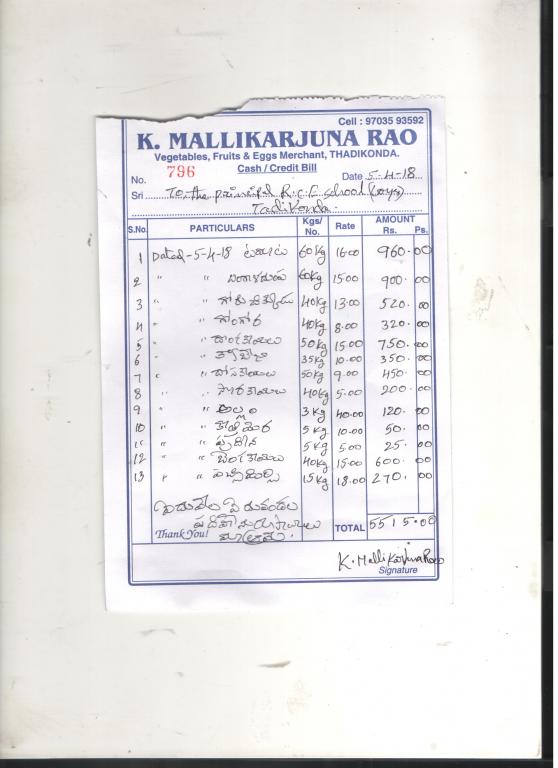 Cell : 97035 93592
K. MALLIKARJUNA RAO
Vegetables, Fruits & Eggs Merchant, THADIKONDA.
Cash / Credit Bill
No. 796 Date 5-4-18
Sri To, the R.C.F school (boys)
Tadikonda
S.No. PARTICULARS Kgs/No. Rate AMOUNT Rs. Ps.
1 Dated-5-4-18 టమాటు 60Kg 16.00 960.00
2 " " బంగాళదుంప 60Kg 15.00 900.00
3 " " గోరుచిక్కుడు 40Kg 13.00 520.00
4 " " గోంగూర 40Kg 8.00 320.00
5 " " 50Kg 15.00 750.00
6 " " క్యాబేజి 35Kg 10.00 350.00
7 " " దోసకాయలు 50Kg 9.00 450.00
8 " " సొరకాయలు 40Kg 5.00 200.00
9 " " అల్లం 3Kg 40.00 120.00
10 " " కొత్తిమీర 5Kg 10.00 50.00
11 " " పుదీన 5Kg 5.00 25.00
12 " " వంకాయలు 40Kg 15.00 600.00
13 " " పచ్చిమిర్చి 15Kg 18.00 270.00
ఐదువేల ఐదువందల
పదిహేను రూపాయలు
Thank You! మాత్రమే. TOTAL 5515.00
K. Mallikarjuna Rao
Signature